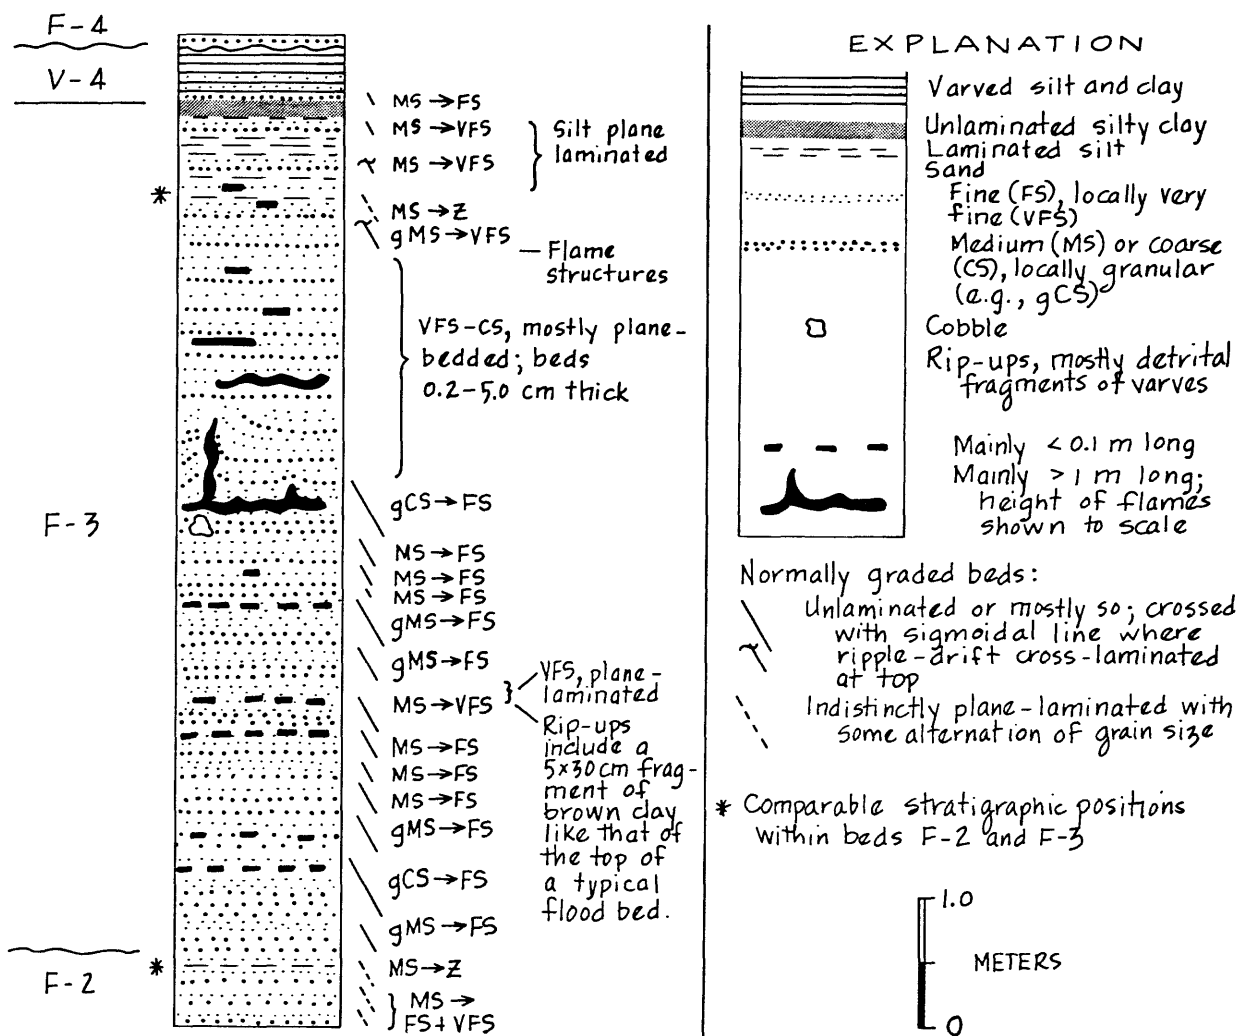 F-4
V-4
F-3
F-2
*
*
MS→FS
MS→VFS
MS→VFS
Silt plane
laminated
MS→Z
gMS→VFS
— Flame
structures
VFS-CS, mostly plane-
bedded; beds
0.2-5.0 cm thick
gCS→FS
MS→FS
MS→FS
MS→FS
gMS→FS
gMS→FS
MS→VFS
VFS, plane-
laminated
Rip-ups
include a
5x30cm frag-
ment of
brown clay
like that of
the top of
a typical
flood bed.
MS→FS
MS→FS
MS→FS
gMS→FS
gCS→FS
gMS→FS
MS→Z
MS→
FS+VFS
EXPLANATION
Varved silt and clay
Unlaminated silty clay
Laminated silt
Sand
Fine (FS), locally very
fine (VFS)
Medium (MS) or coarse
(CS), locally granular
(e.g., gCS)
Cobble
Rip-ups, mostly detrital
fragments of varves
Mainly < 0.1 m long
Mainly > 1 m long;
height of flames
shown to scale
Normally graded beds:
Unlaminated or mostly so; crossed
with sigmoidal line where
ripple-drift cross-laminated
at top
Indistinctly plane-laminated with
some alternation of grain size
* Comparable stratigraphic positions
within beds F-2 and F-3
1.0
METERS
0